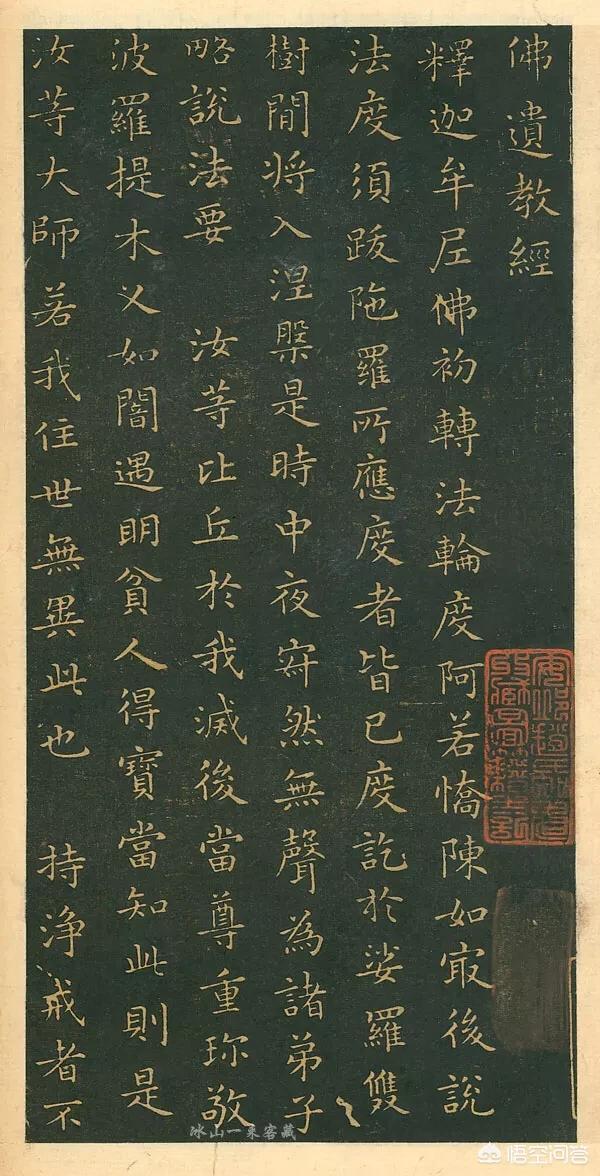 佛遺教經
釋迦牟尼佛初轉法輪度阿若憍陳如冣後說
法度須跋陁羅所應度者皆已度訖於娑羅雙
樹間将入涅槃是時中夜寂然無聲為諸弟子
略說法要 汝等比丘於我滅後當尊重珎敬
波羅提木叉如闇遇明貧人得寶當知此則是
汝等大師若我住世無異此也 持淨戒者不
冰山一来客藏
悟空问答